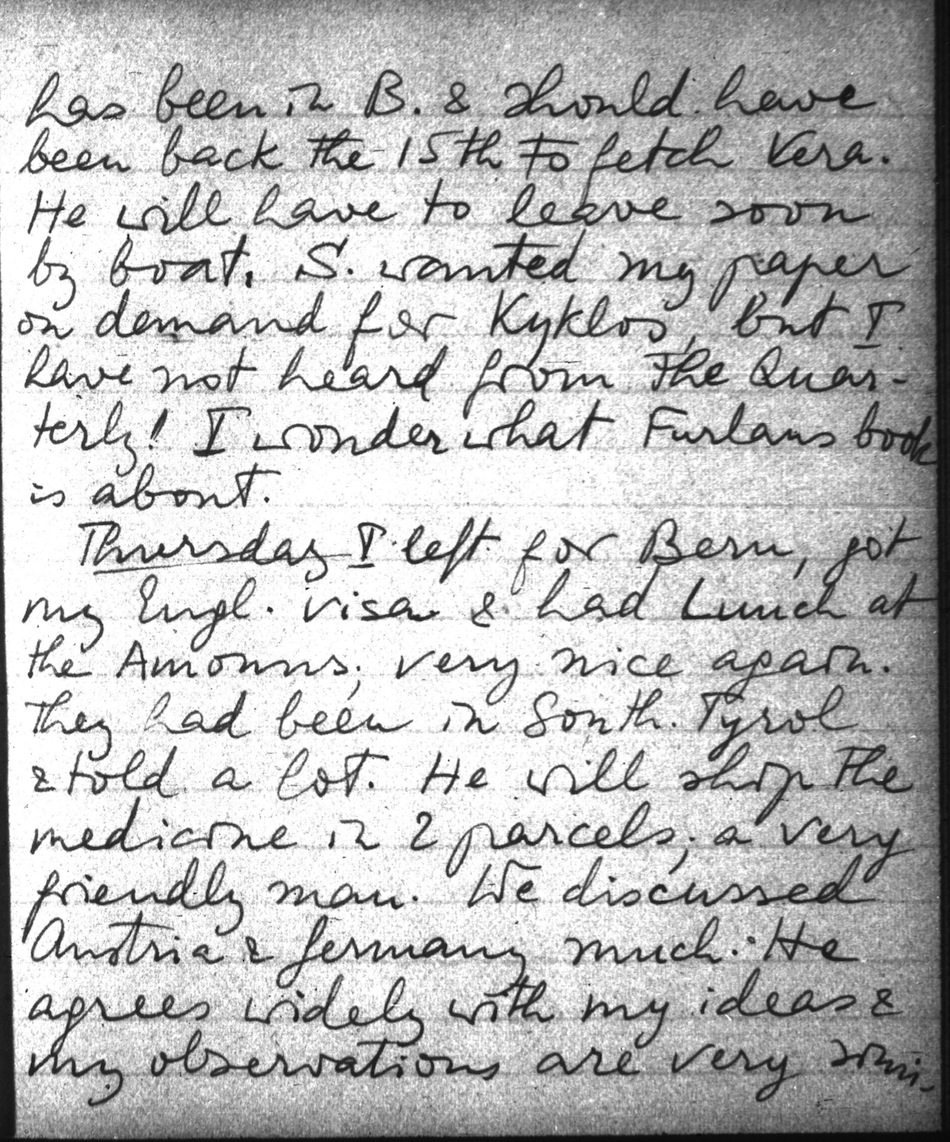 has been in B. & should have
been back the 15th to fetch Vera.
He will have to leave soon
by boat. S. wanted my paper
on demand for Kyklos, but I
have not heard from The Quar-
terly! I wonder what Furlans book
is about.
Thursday I left for Bern, got
my Engl. visa & had Lunch at
the Amonns; very nice again.
They had been in South Tyrol
& told a lot. He will ship the
medicine in 2 parcels; a very
friendly man. We discussed
Austria & Germany much. He
agrees widely with my ideas &
my observations are very simi-